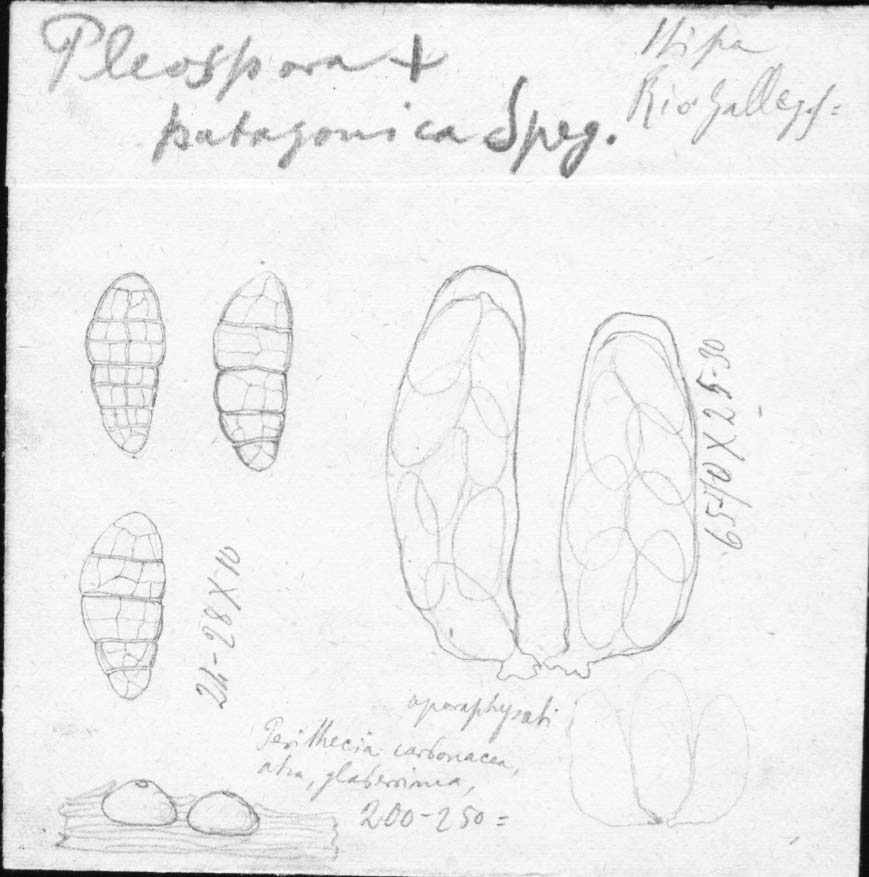 Pleospora +
patagonica Speg.
Stipa
Rio Gallegos =
65-70 X 25-30
22-28 X 10
aparaphysati
Perithecia carbonacea,
atra, glaberrima,
200-250 =